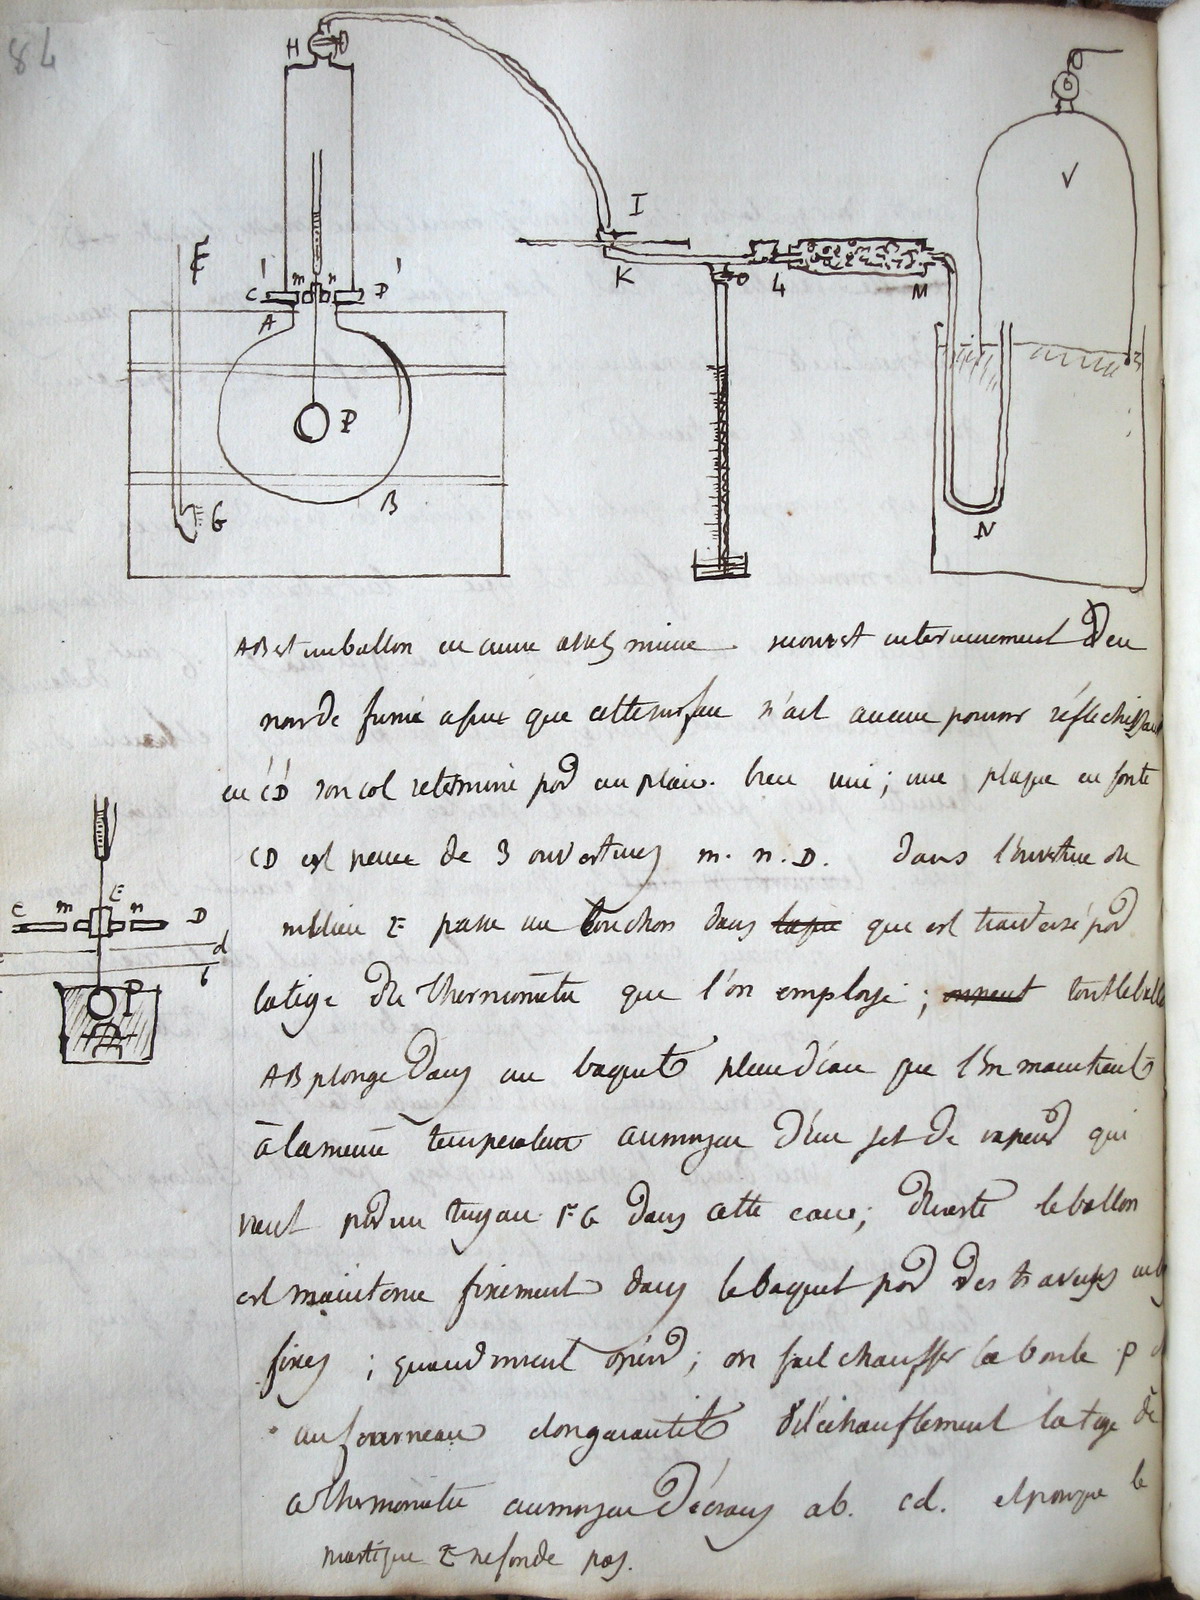 84
H
I
V
F
C' m n D'
K
L
M
A
P
B
G
N
AB est un ballon en cuivre assez mince. recouvert interieurement de
noir de fumé afin que cette surface n'ait aucun pouvoir réflechissant
en C'D' son col se termine par un plan bien uni; une plaque en fonte
CD est percée de 3 ouvertures m. n. D. dans l'ouverture du
milieu E passe un bouchon dans que est traversé par
la tige du thermometre que l'on employe; on peut tout le ballon
AB plonge dans un baquet plein d'eau que l'on maintient
à la meme temperature au moyen d'un jet de vapeur qui
vient par un tuyau FG dans cette eau; du reste le ballon
est maintenu fixement dans le baquet par des traverses
fixes; quand on veut opérer; on fait chauffer la boule P
au fourneau en garantit de l'échauffement la tige de
ce thermometre au moyen d'écrans ab. cd. et pour que le
mastique E ne fonde pas.
E
C m n D
d
b
P